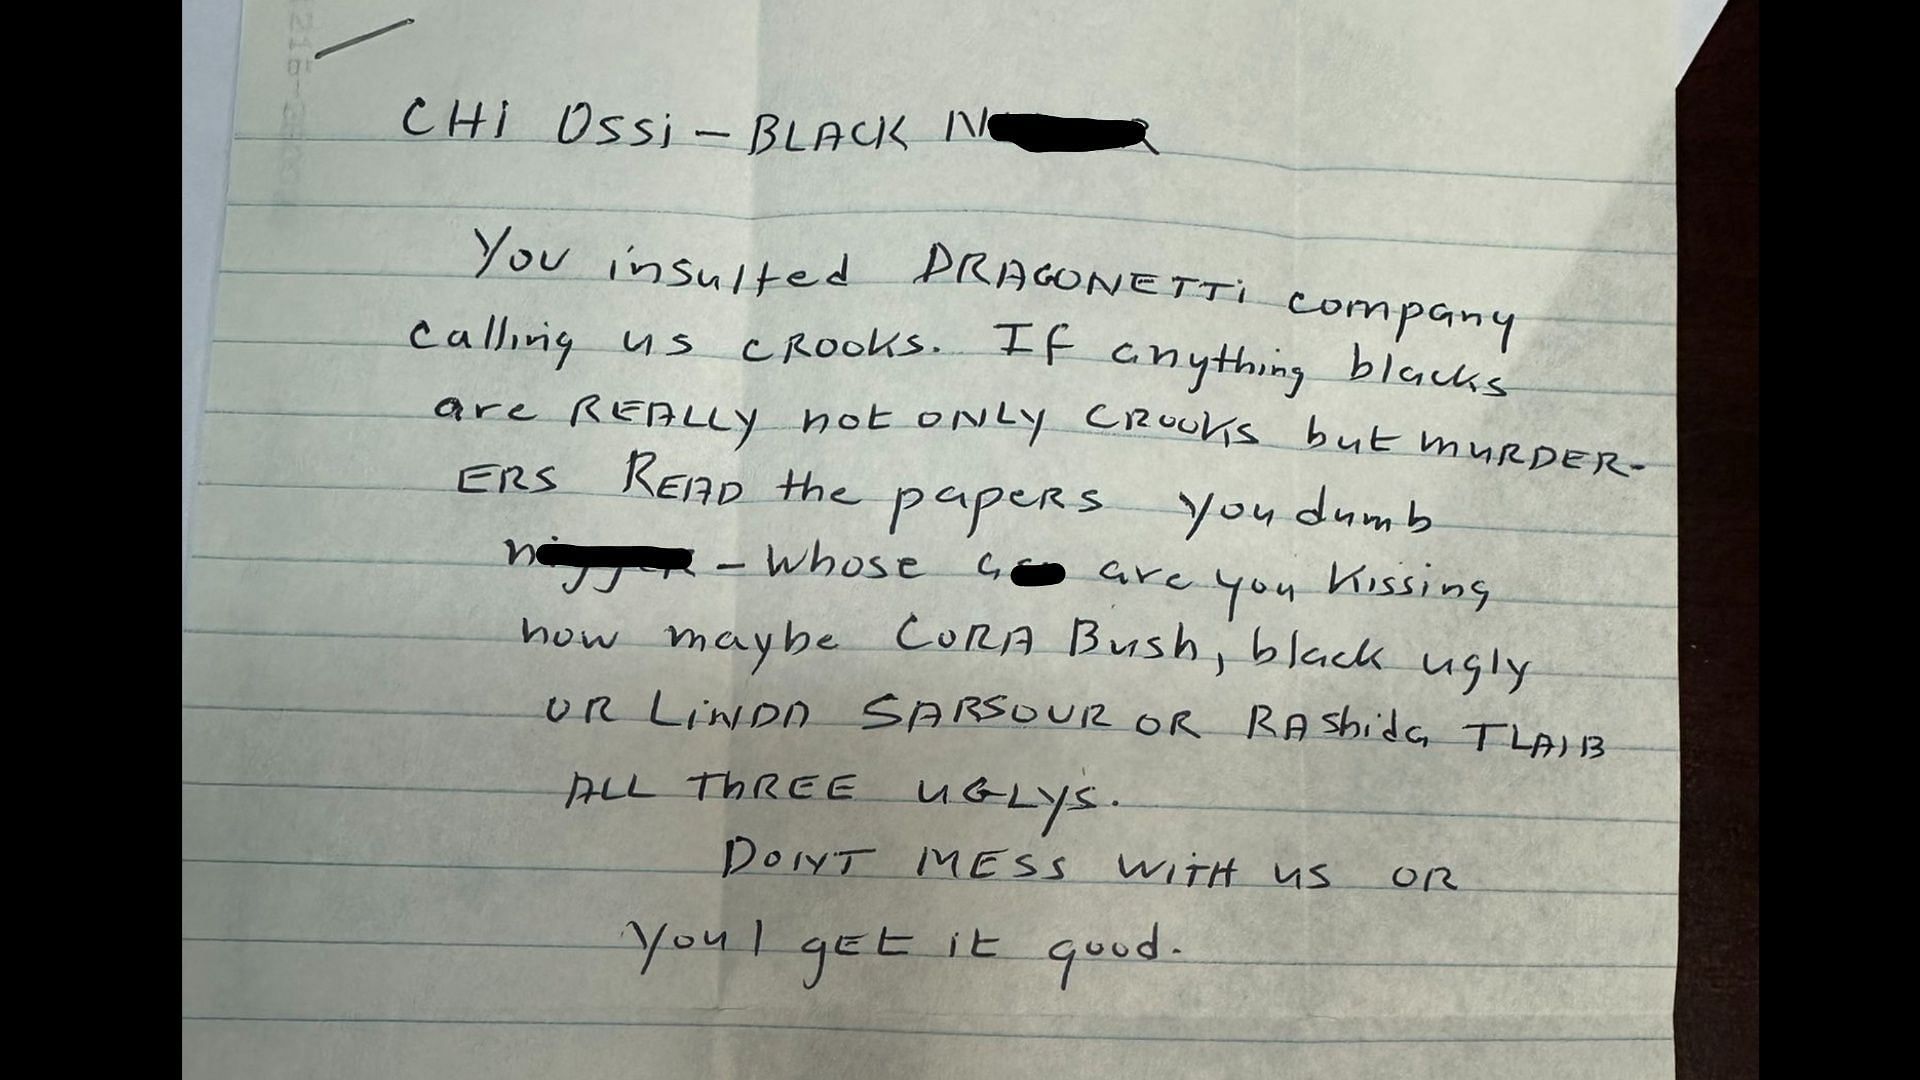 CHi OSSi – BLACK
You insulted DRAGONETTi company
calling us CROOKS. If anything blacks
are REALLY not ONLY CROOKS but MURDER-
ERS READ the papERS you dumb
– Whose are you Kissing
now maybe CORA Bush, black ugly
OR LiNDA SARSOUR OR RAShida TLAIB
ALL ThREE UGLYS.
DONT MESS WiTH US OR
youl gEt it good.